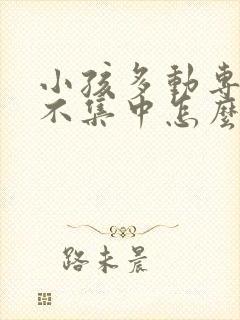 小孩多動專
不集中怎麼
路未晨